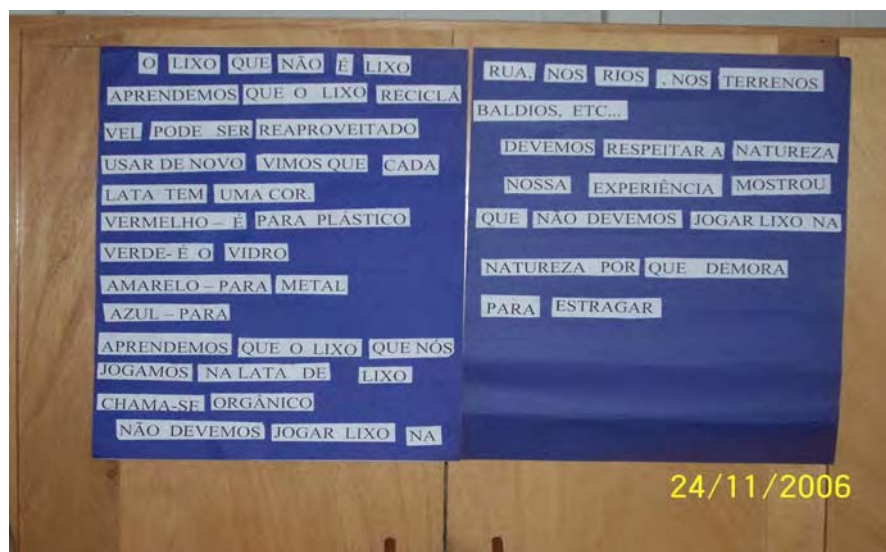 O LIXO QUE NÃO É LIXO
APRENDEMOS QUE O LIXO RECICLÁ
VEL PODE SER REAPROVEITADO
USAR DE NOVO VIMOS QUE CADA
LATA TEM UMA COR.
VERMELHO – É PARA PLÁSTICO
VERDE- É O VIDRO
AMARELO – PARA METAL
AZUL – PARA
APRENDEMOS QUE O LIXO QUE NÓS
JOGAMOS NA LATA DE LIXO
CHAMA-SE ORGÂNICO
NÃO DEVEMOS JOGAR LIXO NA
RUA, NOS RIOS , NOS TERRENOS
BALDIOS, ETC...
DEVEMOS RESPEITAR A NATUREZA
NOSSA EXPERIÊNCIA MOSTROU
QUE NÃO DEVEMOS JOGAR LIXO NA
NATUREZA POR QUE DEMORA
PARA ESTRAGAR
24/11/2006